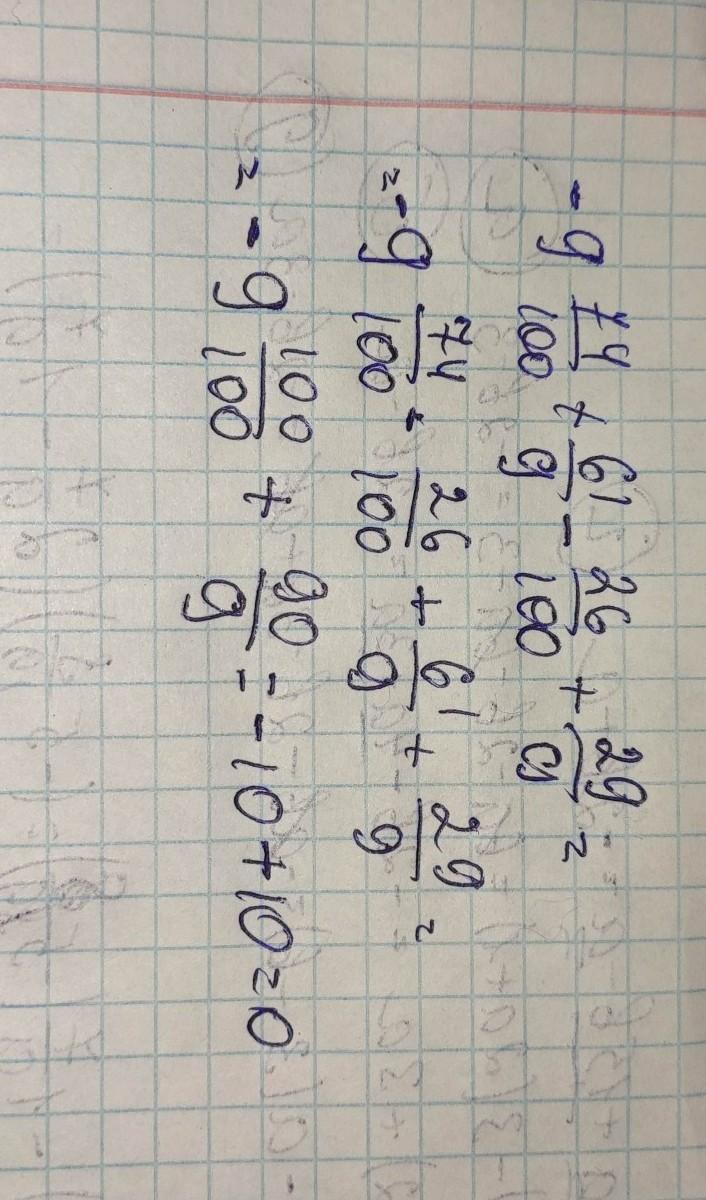 - 9 74/100 + 61/9 - 26/100 + 29/9 =
= - 9 74/100 - 26/100 + 61/9 + 29/9 =
= - 9 100/100 + 90/9 = - 10 + 10 = 0